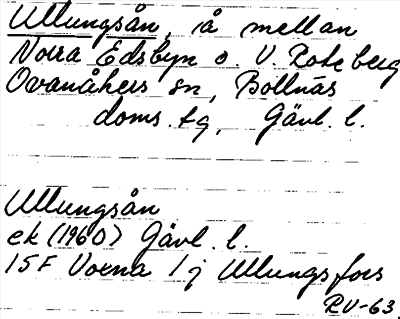 Ullungsån, å mellan
Norra Edsbyn o. V. Roteberg
Ovanåkers sn, Bollnäs
doms. tg, Gävl. l.
Ullungsån
ek (1960) Gävl. l.
15F Voxna 1j Ullungsfors
RV-63.